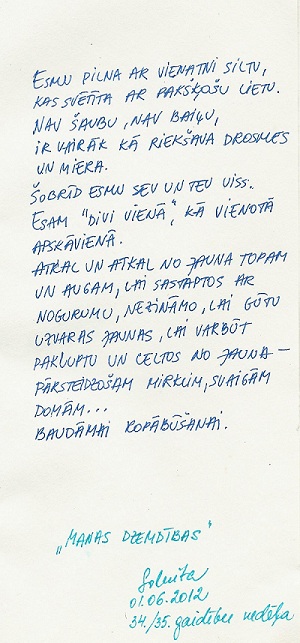 ESMU PILNA AR VIENATNI SILTU,
KAS SVĒTĪTA AR PAKŠĶOŠU LIETU.
NAV ŠAUBU, NAV BAIĻU,
IR VAIRĀK KĀ RIEKŠAVA DROSMES
UN MIERA.
ŠOBRĪD ESMU SEV UN TEV VISS.
ESAM "DIVI VIENĀ", KĀ VIENOTĀ
APSKĀVIENĀ.
ATKAL UN ATKAL NO JAUNA TOPAM
UN AUGAM, LAI SASTAPTOS AR
NOGURUMU, NEZINĀMO, LAI GŪTU
UZVARAS JAUNAS, LAI VARBŪT
PAKLUPTU UN CELTOS NO JAUNA –
PĀRSTEIDZOŠAM MIRKLIM, SVAIGĀM
DOMĀM...
BAUDĀMAI KOPĀBŪŠANAI.
„MANAS DZEMDĪBAS"
01.06.2012
34./35. gaidību nedēļa